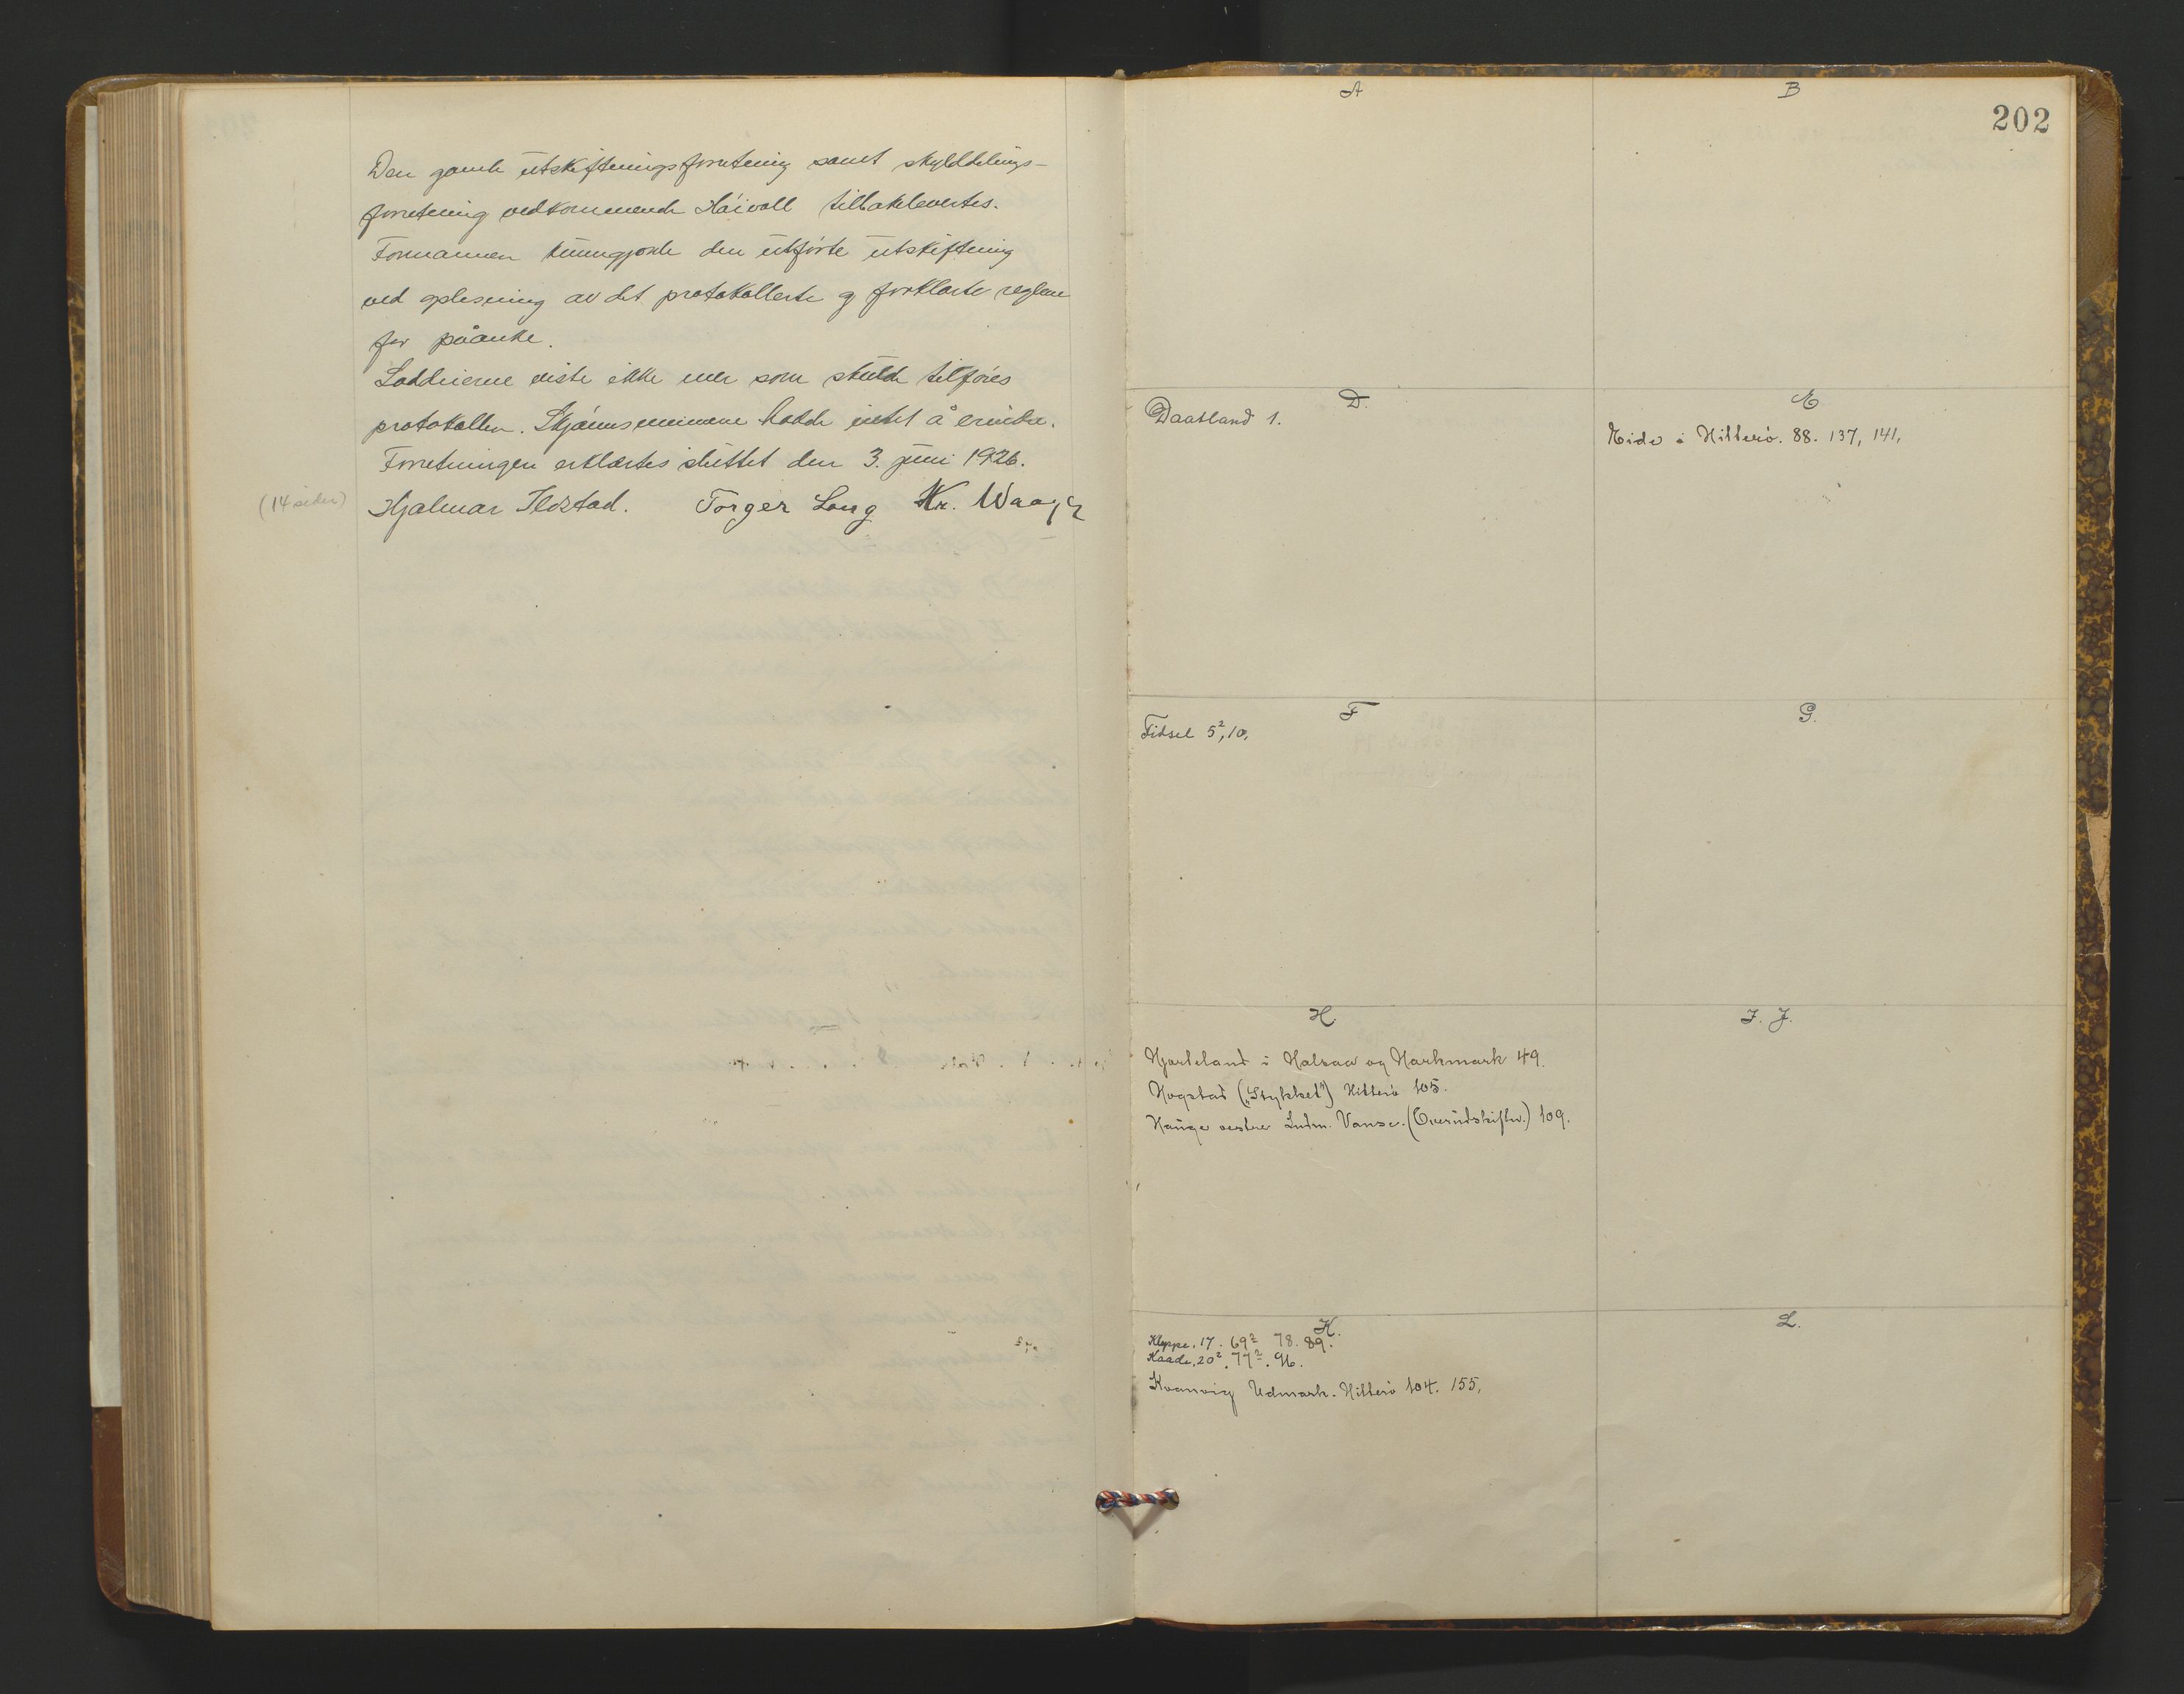 Den gamle utskiftningsforretning samt skylddelings-
forretning vedkommende Håivoll tilbakelevertes.
Formannen kunngjorde den utførte utskiftning
ved oplesning av det protokollerte og forklarte reglene
for påanke.
Loddeierne viste ikke mer som skulde tilføies
protokollen. Skjønnsmennene hadde intet å erindre.
Forretningen erklærtes sluttet den 3. juni 1926.
(14 sider)
Hjalmar Ildstad. Torger Long Kr. Waage
202
A
B
D.
Daatland 1.
E
Eide i Hitterö. 88. 137, 141,
F
Fidsel 5², 10,
G.
H.
Hjorteland i Halsaa og Harkmark 49.
Hogstad („Stykket") Hitterö 105.
Hauge vestre Indm. Vanse. (Overudskiftn.) 109.
I. J.
K.
Kleppe. 17. 69² 78. 89.
Kaade. 20². 77². 96.
Kvanvig Udmark. Hitterö 104. 155,
L.